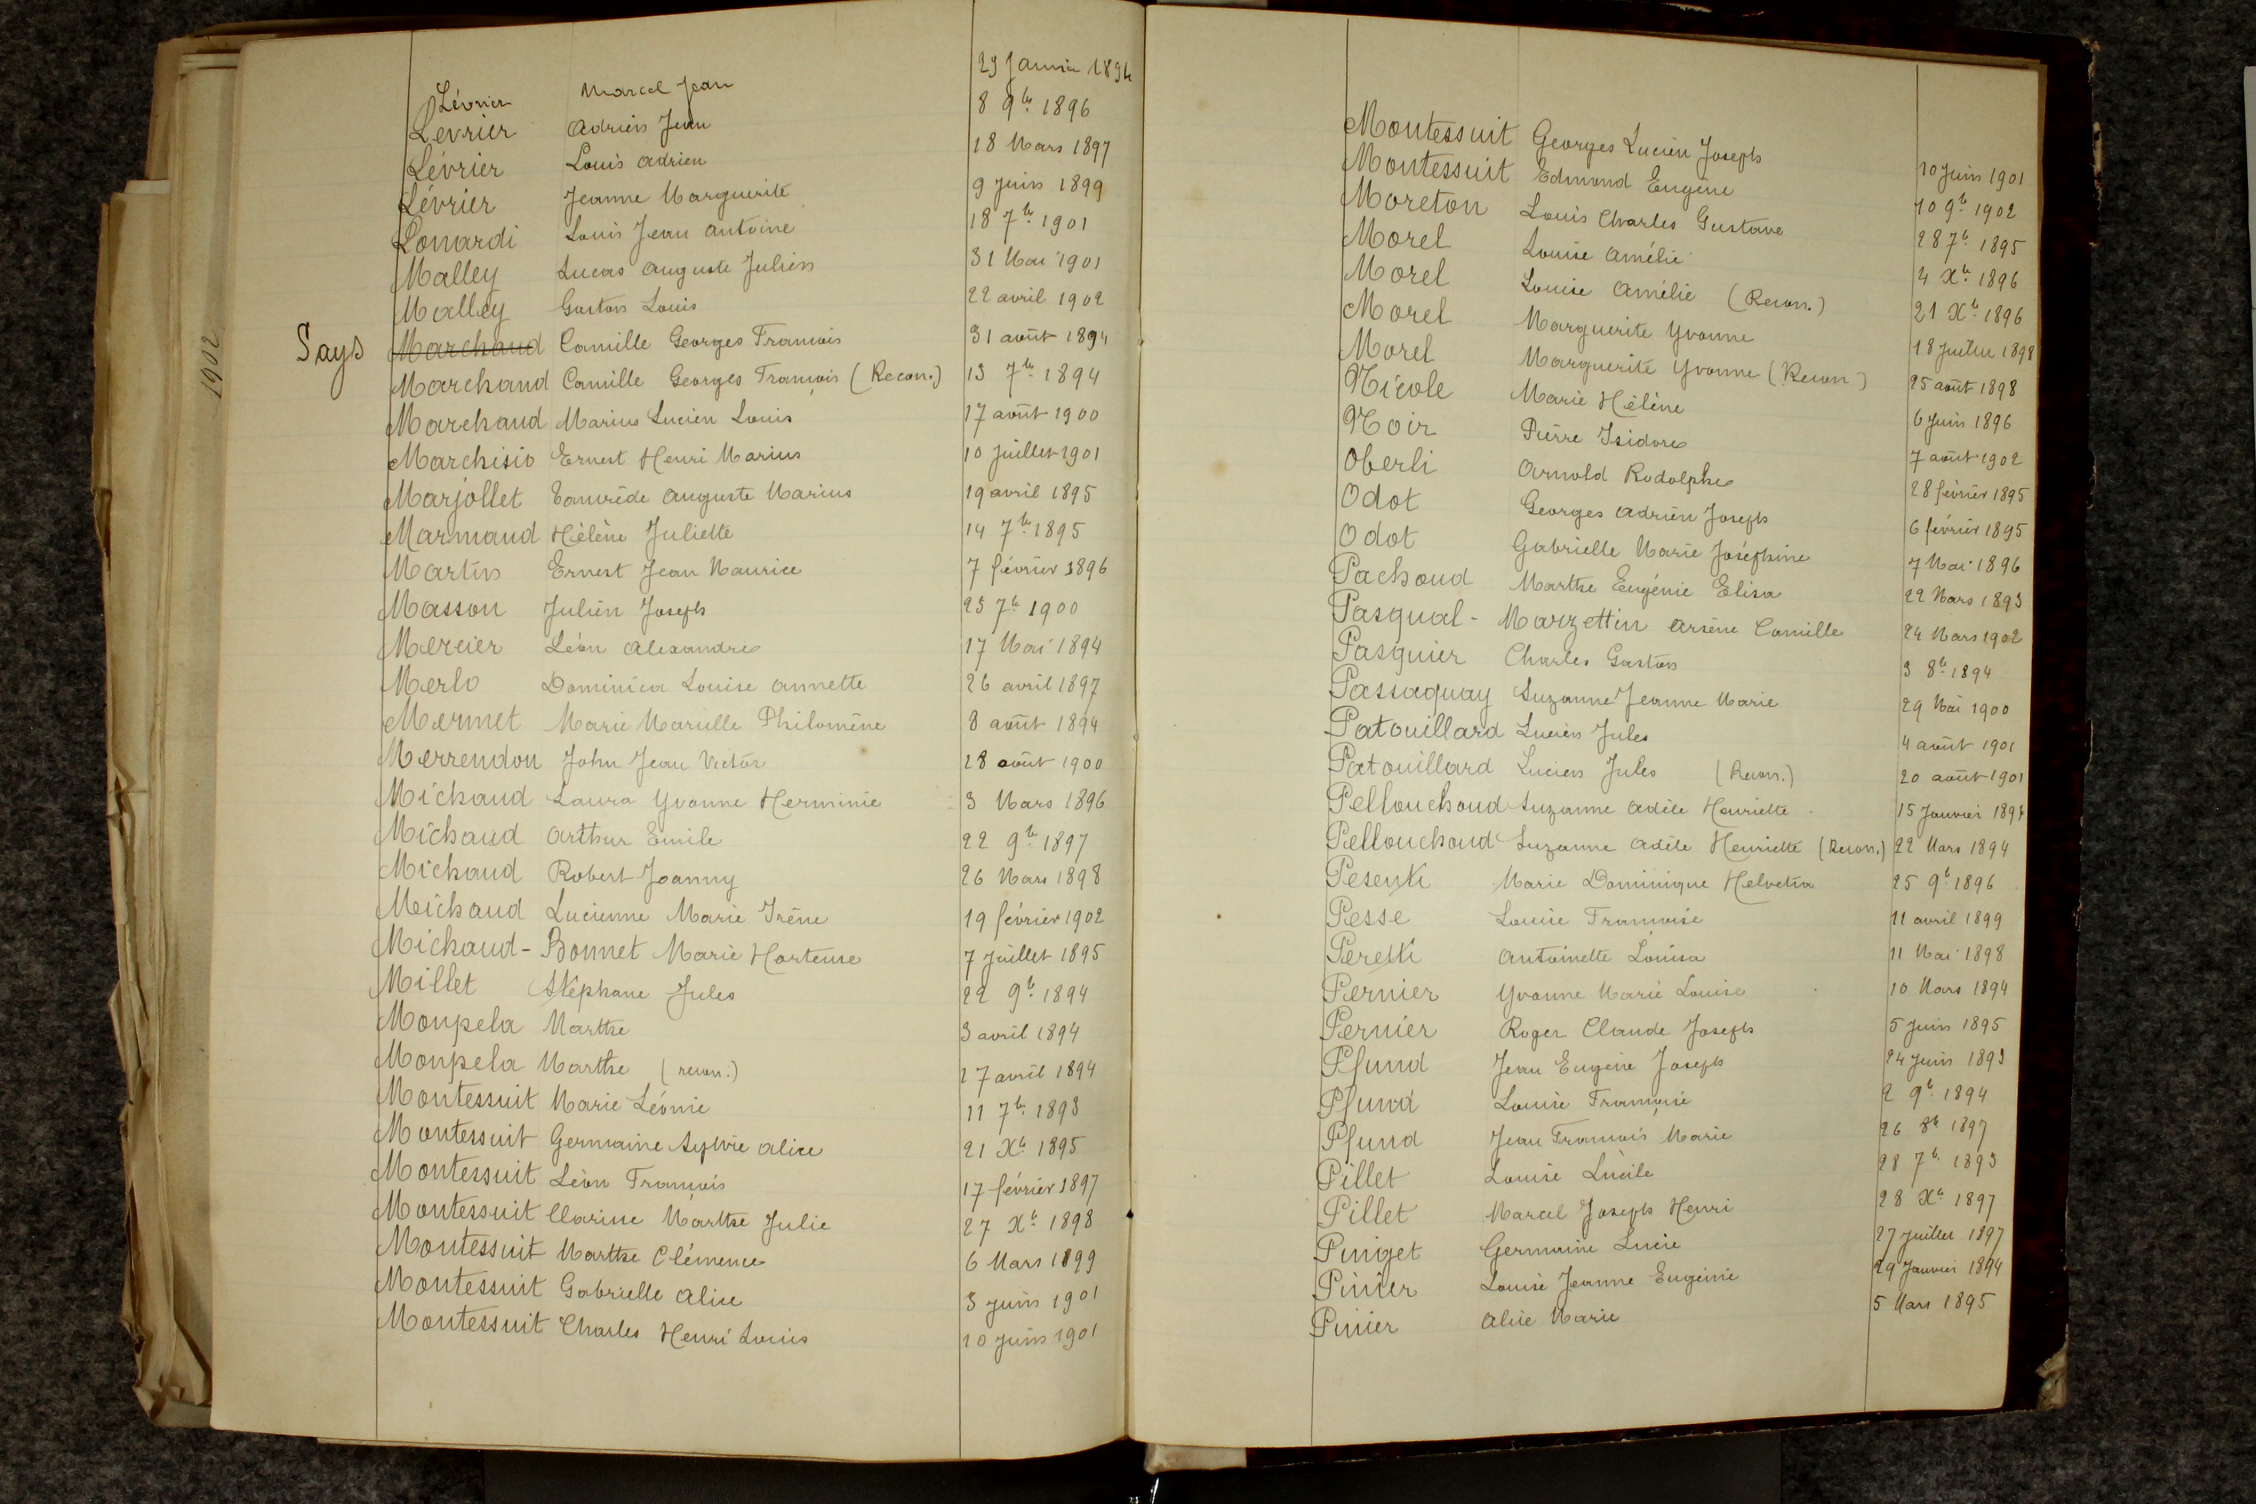 1902
Lévrier Marcel Jean 29 Janvier 1894
Levrier Adrien Jean 8 9bre 1896
Lévrier Louis Adrien 18 Mars 1897
Lévrier Jeanne Marguerite 9 Juin 1899
Lonardi Louis Jean Antoine 18 7bre 1901
Malley Lucas Auguste Julien 31 Mai 1901
Malley Gaston Louis 22 avril 1902
Says Marchand Camille Georges François 31 août 1894
Marchand Camille Georges François (Recon.) 13 7bre 1894
Marchand Marius Lucien Louis 17 août 1900
Marchisio Ernest Henri Marius 10 Juillet 1901
Marjollet Tancrède Auguste Marius 19 avril 1895
Marmand Hélène Juliette 14 7bre 1895
Martin Ernest Jean Maurice 7 février 1896
Masson Julien Joseph 23 7bre 1900
Mercier Léon Alexandre 17 Mai 1894
Merlo Dominica Louise Annette 26 avril 1897
Mermet Marie Marielle Philomène 8 août 1894
Merrendon John Jean Victor 28 août 1900
Michaud Laura Yvonne Herminie 3 Mars 1896
Michaud Arthur Emile 22 9bre 1897
Michaud Robert Joanny 26 Mars 1898
Michaud Lucienne Marie Irène 19 février 1902
Michaud-Bonnet Marie Hortense 7 Juillet 1895
Millet Stéphane Jules 22 9bre 1894
Monpela Marthe 3 avril 1894
Monpela Marthe (recon.) 27 avril 1894
Montessuit Marie Léonie 11 7bre 1893
Montessuit Germaine Sylvie Alice 21 Xbre 1895
Montessuit Léon François 17 février 1897
Montessuit Clarine Marthe Julie 27 Xbre 1898
Montessuit Marthe Clémence 6 Mars 1899
Montessuit Gabrielle Alice 3 Juin 1901
Montessuit Charles Henri Louis 10 Juin 1901
Montessuit Georges Lucien Joseph 10 Juin 1901
Montessuit Edmond Eugène 10 9bre 1902
Moreton Louis Charles Gustave 28 7bre 1895
Morel Louise Amélie 4 Xbre 1896
Morel Louise Amélie (Recon.) 21 Xbre 1896
Morel Marguerite Yvonne 18 Juillet 1898
Morel Marguerite Yvonne (Recon) 25 août 1898
Nicole Marie Hélène 6 Juin 1896
Noir Pierre Isidore 7 août 1902
Oberli Arnold Rodolphe 28 février 1895
Odot Georges Adrien Joseph 6 février 1895
Odot Gabrielle Marie Joséphine 7 Mai 1896
Pachoud Marthe Eugénie Elisa 22 Mars 1893
Pasqual-Marzettin Arsène Camille 24 Mars 1902
Pasquier Charles Gaston 3 8bre 1894
Passaquay Suzanne Jeanne Marie 29 Mai 1900
Patouillard Lucien Jules 4 août 1901
Patouillard Lucien Jules (Recon.) 20 août 1901
Pellouchoud Suzanne Adèle Henriette 15 Janvier 1894
Pellouchoud Suzanne Adèle Henriette (Recon.) 22 Mars 1894
Pesenti Marie Dominique Helvetia 25 9bre 1896
Pesse Louise Françoise 11 avril 1899
Peretti Antoinette Louisa 11 Mai 1898
Pernier Yvonne Marie Louise 10 Mars 1894
Pernier Roger Claude Joseph 5 Juin 1895
Pfund Jean Eugène Joseph 24 Juin 1893
Pfund Louise Françoise 2 9bre 1894
Pfund Jean François Marie 26 8bre 1897
Pillet Louise Lucile 28 7bre 1893
Pillet Marcel Joseph Henri 28 Xbre 1897
Pinget Germaine Lucie 27 Juillet 1897
Pinier Louise Jeanne Eugénie 29 Janvier 1894
Pinier Alice Marie 5 Mars 1895